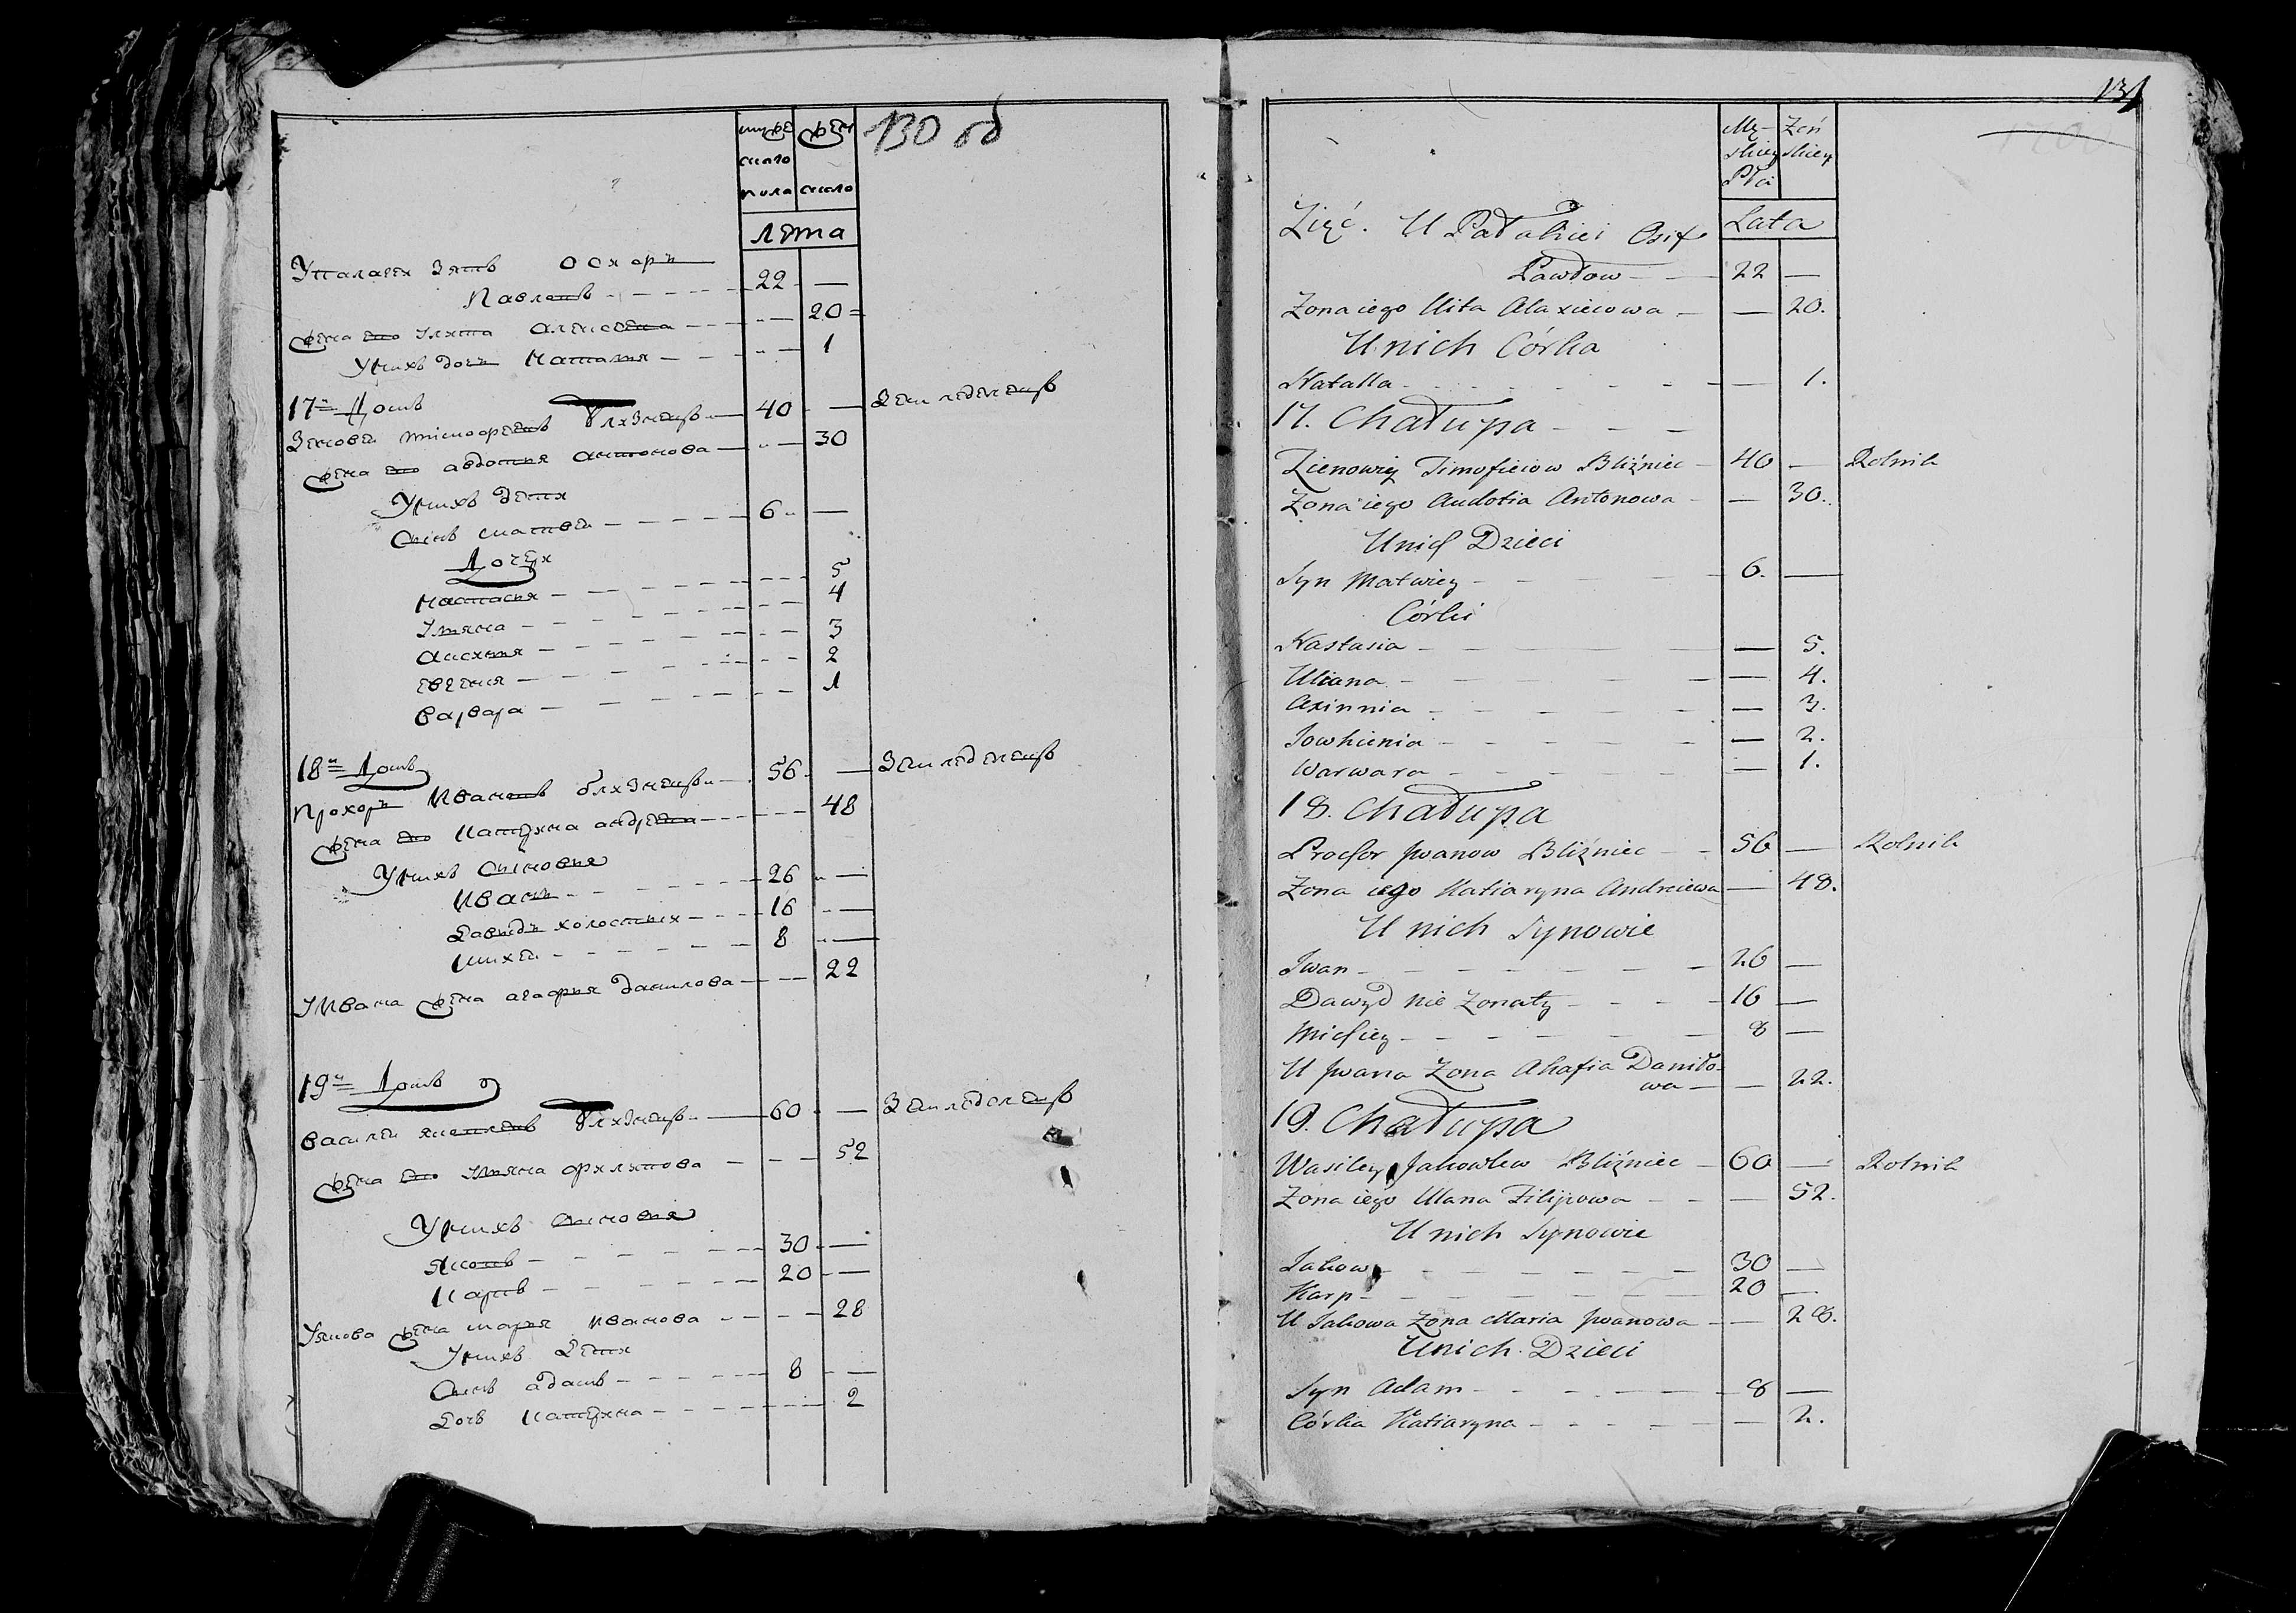 мужес
кого
пола
жен
ского
130 об
лѣта
Упалагеи зять Осипъ
Павловъ 22 —
жена его Улита Алексеева — 20
Унихъ дочь Наталия — 1
17й Домъ
Зеновей тимофеевъ близнецъ 40 — Земледелецъ
жена его авдотия антонова — 30
Унихъ дети
Сынъ матвей 6 —
Дочери
Настасия 5
Уляна 4
аксиния 3
евгения 2
варвара 1
18й Домъ
Прохоръ Ивановъ близнецъ 56 — Земледелецъ
жена его Катерина андреева 48
Унихъ Сыновия
Иванъ 26 —
Давыдъ холостыи 16 —
михей 8 —
У Ивана жена агафия данилова — 22
19й Домъ
василей яковлевъ близнецъ 60 — Земледелецъ
жена его Уляна филипова — 52
Унихъ Сыновия
Яковъ 30 —
Карпъ 20 —
Уякова жена мария Иванова — 28
Унихъ Дети
Сынъ адамъ 8 —
Дочь Катерина 2
131
Mę-
skiey
Płci
Żeń
skiey
Lata
Zięć. U Pałahiei Osif
Pawłow 22 —
Żona iego Ulita Alaxieiowa — 20.
U nich Córka
Natalla — 1.
17. Chałupa
Zienowiy Timofieiow Bliźniec 40 — Rolnik
Żona iego Audotia Antonowa — 30.
U nich Dzieci
Syn Matwiey 6. —
Córki
Nastasia — 5.
Uliana — 4.
Axinnia — 3.
Jowhienia — 2.
Warwara — 1.
18. Chałupa
Prochor Jwanow Bliźniec 56 — Rolnik
Żona iego Katiaryna Andreiewa — 48.
U nich Synowie
Jwan 26 —
Dawyd nie Żonaty 16 —
Michiey 8 —
U Jwana Żona Ahafia Daniło-
wa — 22.
19. Chałupa
Wasiley Jakowlew Bliźniec 60 — Rolnik
Żona iego Ulana Filipowa — 52.
U nich Synowie
Jakow 30 —
Karp 20 —
U Jakowa Żona Maria Jwanowa — 28.
U nich Dzieci
Syn Adam 8 —
Córka Katiaryna — 2.